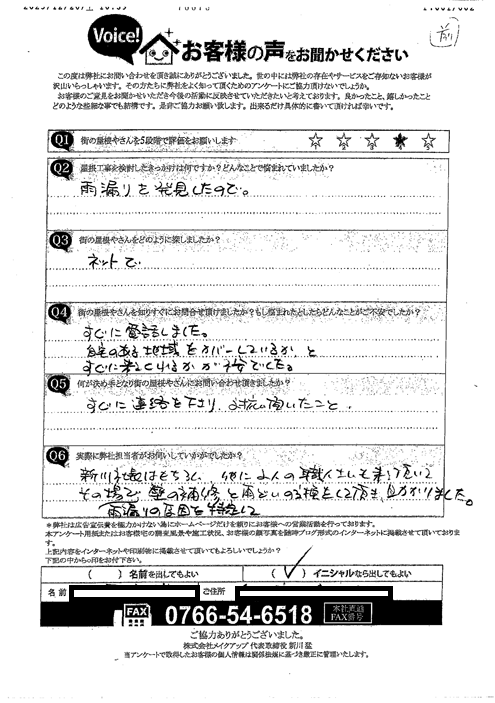 2025/12/20/土
P.001/002
前
Voice!
お客様の声をお聞かせください
この度は弊社にお問い合わせを頂き誠にありがとうございました。世の中には弊社の存在やサービスをご存知ないお客様が
沢山いらっしゃいます。その方たちに弊社をよく知って頂くためのアンケートにご協力頂けないでしょうか。
お客様のご意見をお聞かせいただき今後の活動に反映させていただきたいと考えております。良かったこと、嬉しかったこと
どのような些細な事でも結構です。是非ご協力お願い致します。出来るだけ具体的に書いて頂ければ幸いです。
Q1 街の屋根やさんを5段階で評価をお願いします
Q2 屋根工事を検討したきっかけは何ですか?どんなことで悩まれていましたか?
雨漏りを発見したので。
Q3 街の屋根やさんをどのように探しましたか?
ネットで
Q4 街の屋根やさんを知りすぐにお問合せ頂けましたか?もし悩まれたとしたらどんなことがご不安でしたか?
すぐに電話しました。
自宅のある地域をカバーしているか、と
すぐに来てくれるかが不安でした。
Q5 何が決め手となり街の屋根やさんにお問い合わせ頂きましたか?
すぐに連絡を下さり、対応頂いたこと。
Q6 実際に弊社担当者がお伺いしていかがでしたか?
新川社長はもちろん、他に2人の職人さんも来て頂いて
その場で壁の補修と雨どいの点検をして頂き、助かりました。
雨漏りの原因を特定して
*弊社は広告宣伝費を極力かけない為にホームページだけを頼りにお客様への営業活動を行っております。
本アンケート用紙またはお客様宅の調査風景や施工状況、お客様の顔写真を随時ブログ形式のインターネットに掲載させて頂いております。
上記内容をインターネットや印刷物に掲載させて頂いてもよろしいでしょうか?
下記の中から○印をお付下さい。
( ) 名前を出してもよい
(✓) イニシャルなら出してもよい
名前
ご住所
FAX 0766-54-6518 本社直通 FAX番号
ご協力ありがとうございました。
株式会社メイクアップ 代表取締役 新川 猛
当アンケートで取得したお客様の個人情報は関係法律に基づき厳正に管理いたします。